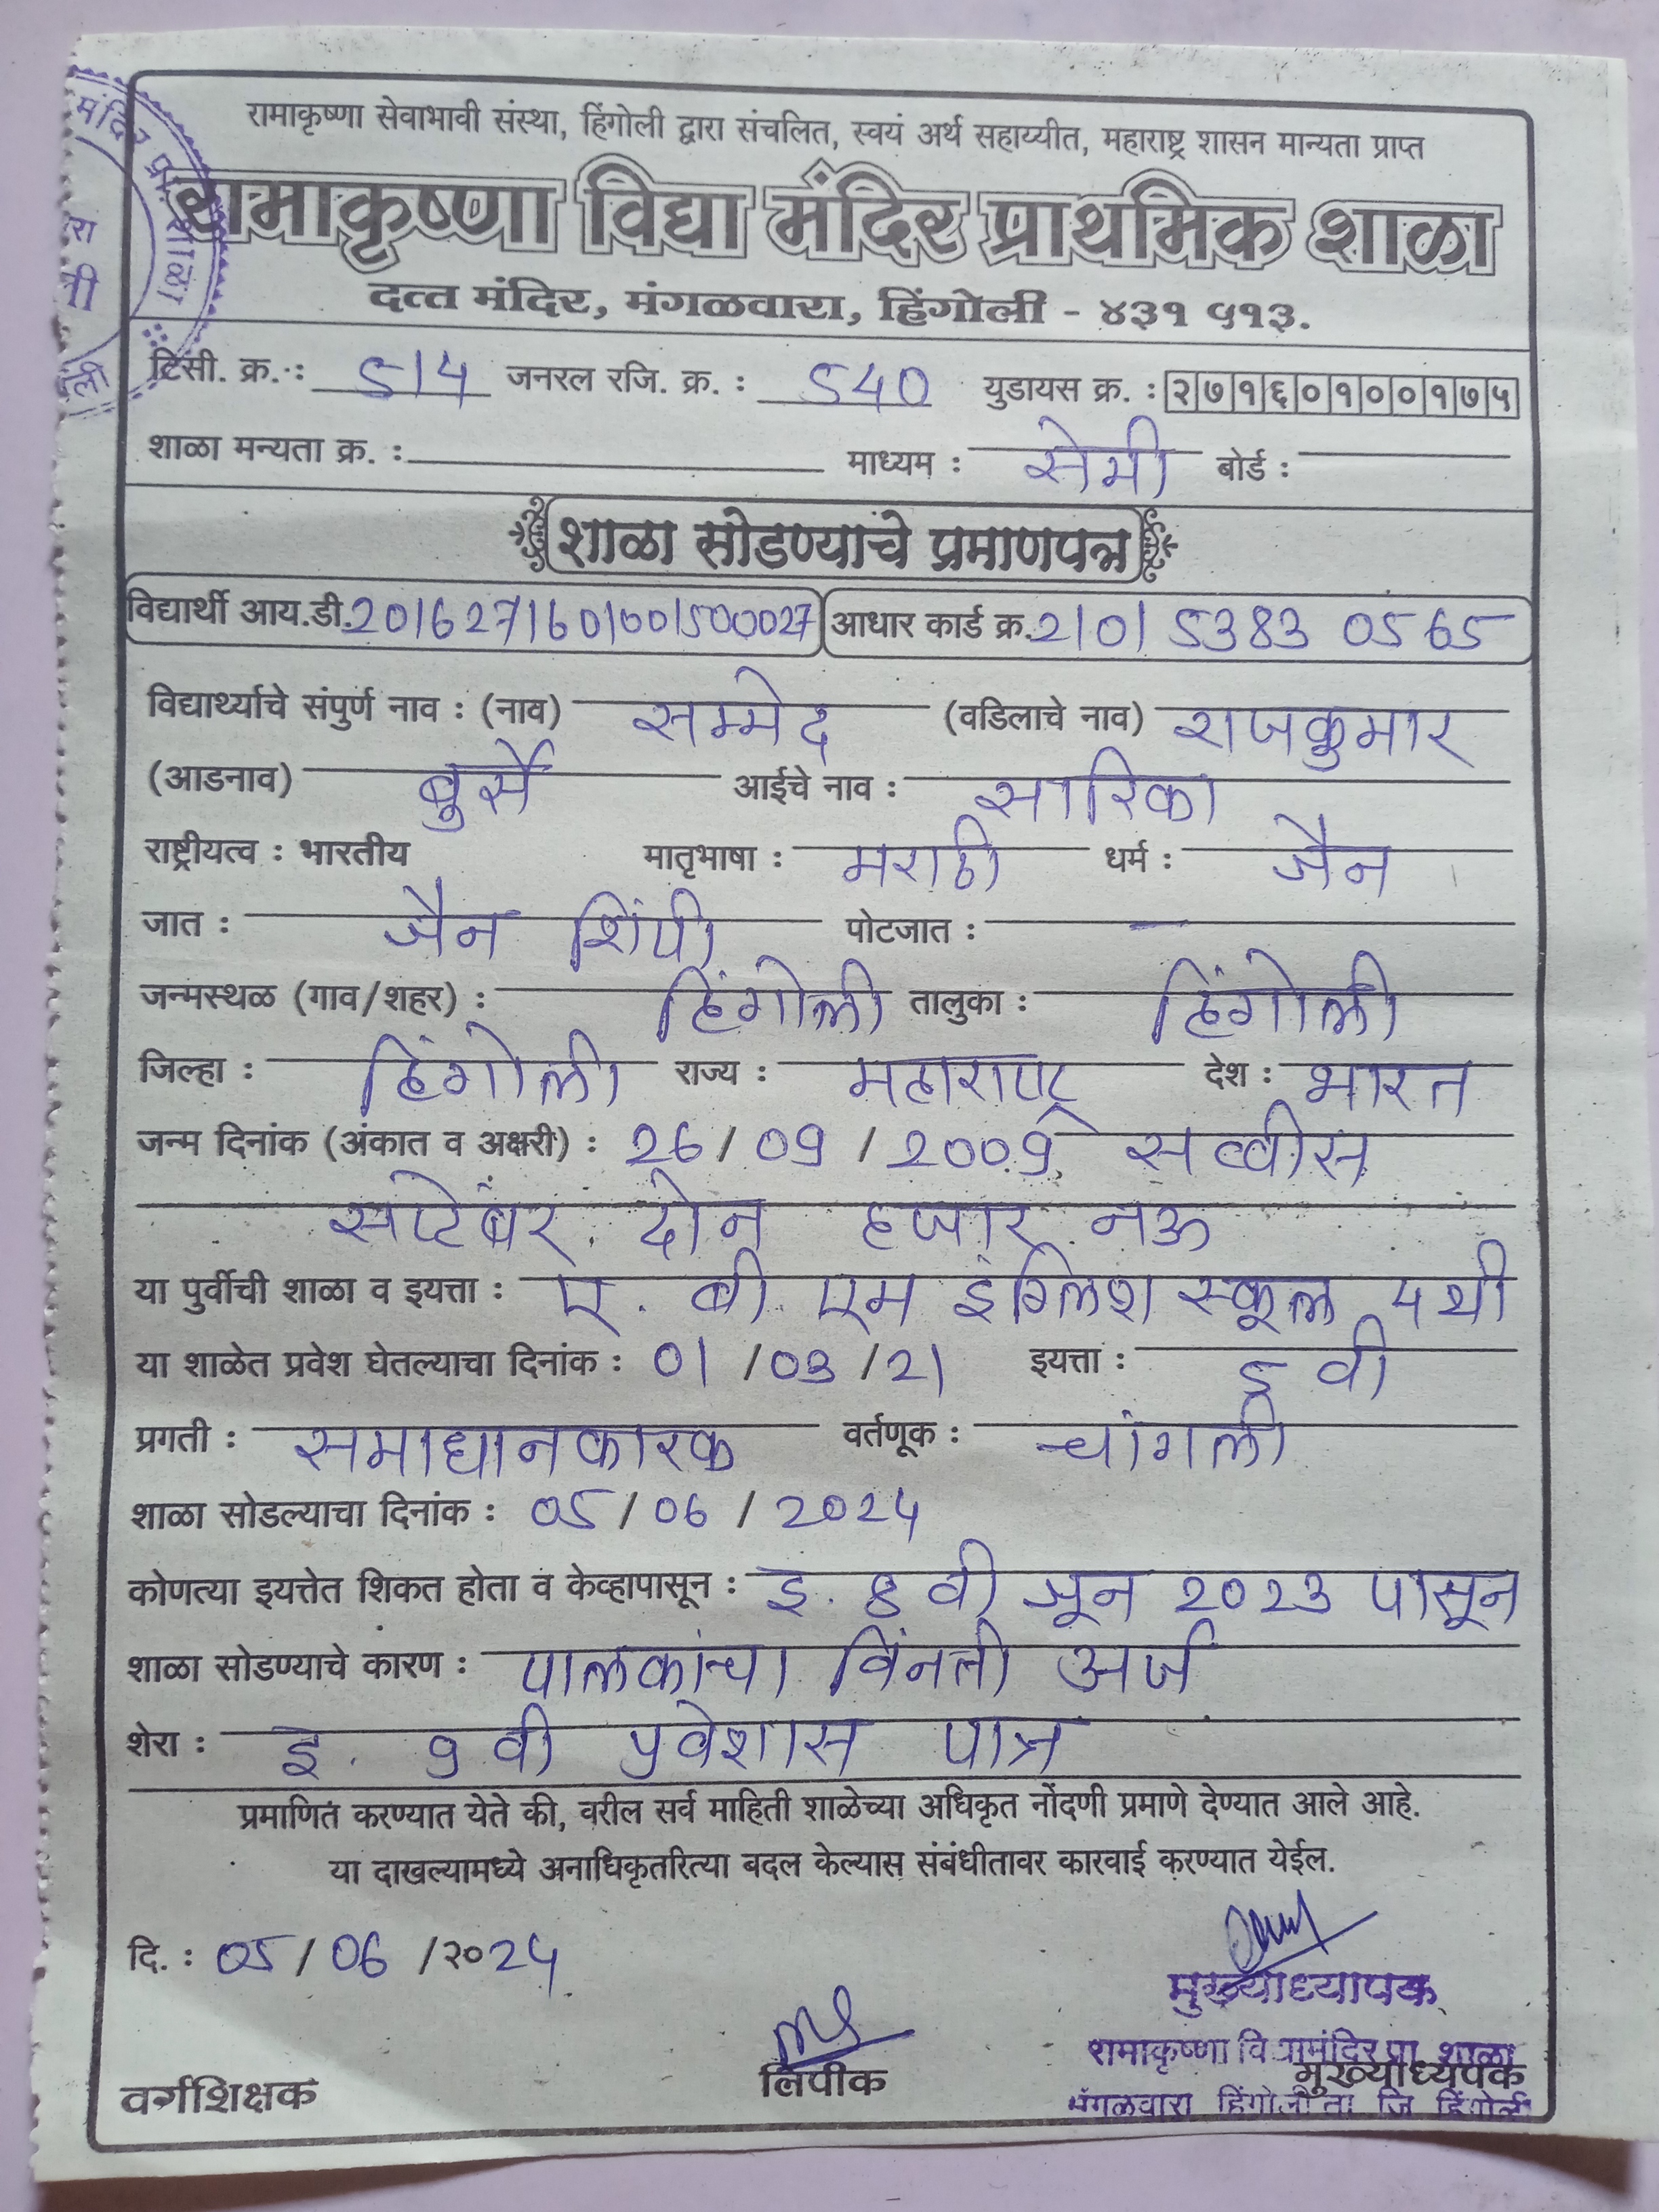 रामाकृष्णा सेवाभावी संस्था, हिंगोली द्वारा संचलित, स्वयं अर्थ सहाय्यीत, महाराष्ट्र शासन मान्यता प्राप्त
रामाकृष्णा विद्या मंदिर प्राथमिक शाळा
दत्त मंदिर, मंगळवारा, हिंगोली - ४३१ ५१३.
टिसी. क्र. : 514 जनरल रजि. क्र. : 540 युडायस क्र. : २७१६०१००१७५
शाळा मन्यता क्र. : माध्यम : सेमी बोर्ड :
शाळा सोडण्याचे प्रमाणपत्र
विद्यार्थी आय.डी. 2016271601001500027 आधार कार्ड क्र. 2101 5383 0565
विद्यार्थ्याचे संपुर्ण नाव : (नाव) सम्मेद (वडिलाचे नाव) राजकुमार
(आडनाव) बुर्से आईचे नाव : सारिका
राष्ट्रीयत्व : भारतीय मातृभाषा : मराठी धर्म : जैन
जात : जैन शिंपी पोटजात : —
जन्मस्थळ (गाव/शहर) : हिंगोली तालुका : हिंगोली
जिल्हा : हिंगोली राज्य : महाराष्ट्र देश : भारत
जन्म दिनांक (अंकात व अक्षरी) : 26/09/2009 सव्वीस
सप्टेंबर दोन हजार नऊ
या पुर्वीची शाळा व इयत्ता : ए. बी. एम इंग्लिश स्कूल 4 थी
या शाळेत प्रवेश घेतल्याचा दिनांक : 01/03/21 इयत्ता : 5 वी
प्रगती : समाधानकारक वर्तणूक : चांगली
शाळा सोडल्याचा दिनांक : 05/06/2024
कोणत्या इयत्तेत शिकत होता व केव्हापासून : इ. 8 वी जून 2023 पासून
शाळा सोडण्याचे कारण : पालकांचा विंनती अर्ज
शेरा : इ. 9 वी प्रवेशास पात्र
प्रमाणित करण्यात येते की, वरील सर्व माहिती शाळेच्या अधिकृत नोंदणी प्रमाणे देण्यात आले आहे.
या दाखल्यामध्ये अनाधिकृतरित्या बदल केल्यास संबंधीतावर कारवाई करण्यात येईल.
दि. : 05/06/२०24
मुख्याध्यापक
रामाकृष्णा विद्यामंदिर प्रा शाळा
वर्गशिक्षक लिपीक मुख्याध्यपक
मंगळवारा हिंगोली ता जि हिंगोली